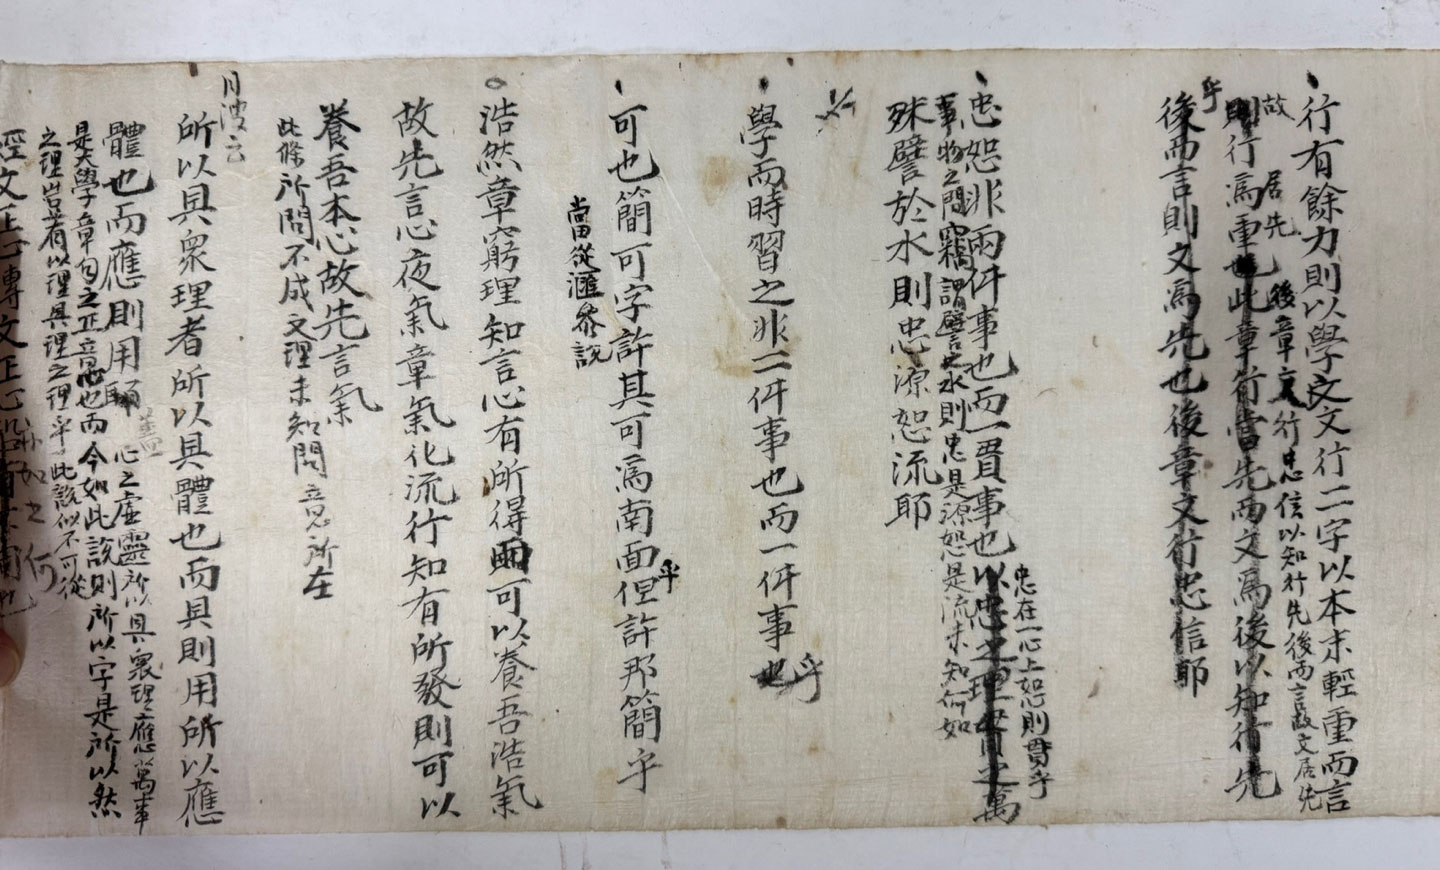 行有餘力則以學文文行二字以本末輕重而言
故居先 後章文行忠信以知行先後而言故文居先
則行爲重也此章行當先而文爲後以知行先
乎
後而言則文爲先也後章文行忠信耶
忠在一心上恕則貫乎
忠恕非兩件事也而一貫事也以忠之理貫之萬
事物之間竊謂譬之水則忠是源恕是流未知何如
殊譬於水則忠源恕流耶
學而時習之非二件事也而一件事也乎
可也簡可字許其可爲南面但許那簡乎
乎
當從滙參說
浩然章窮理知言心有所得可以養吾浩氣
故先言心夜氣章氣化流行知有所發則可以
養吾本心故先言氣
此條所問不成文理未知問意所在
月波云
所以具衆理者所以具體也而具則用所以應
體也而應則用耶 蓋心之虛靈所以具衆理應萬事
是大學章句之正意也而今如此說則所以字是所以然
之理豈有以理具理之理乎此說似不可從